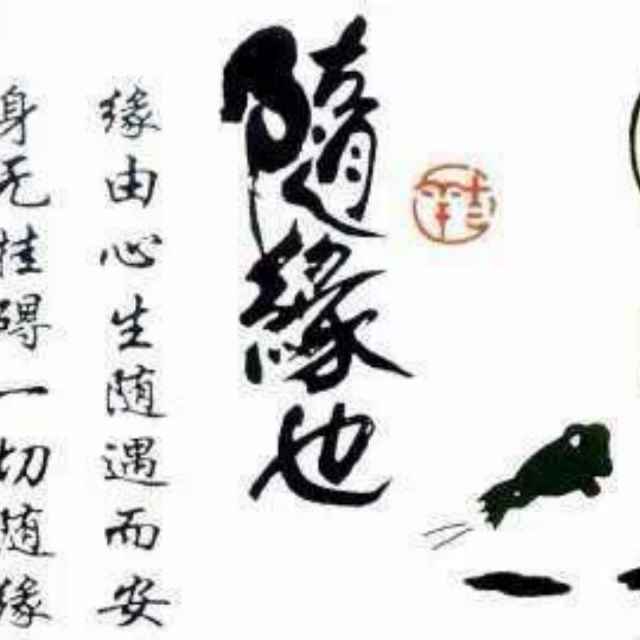 隨緣也
缘由心生随遇而安
身无挂碍一切随缘